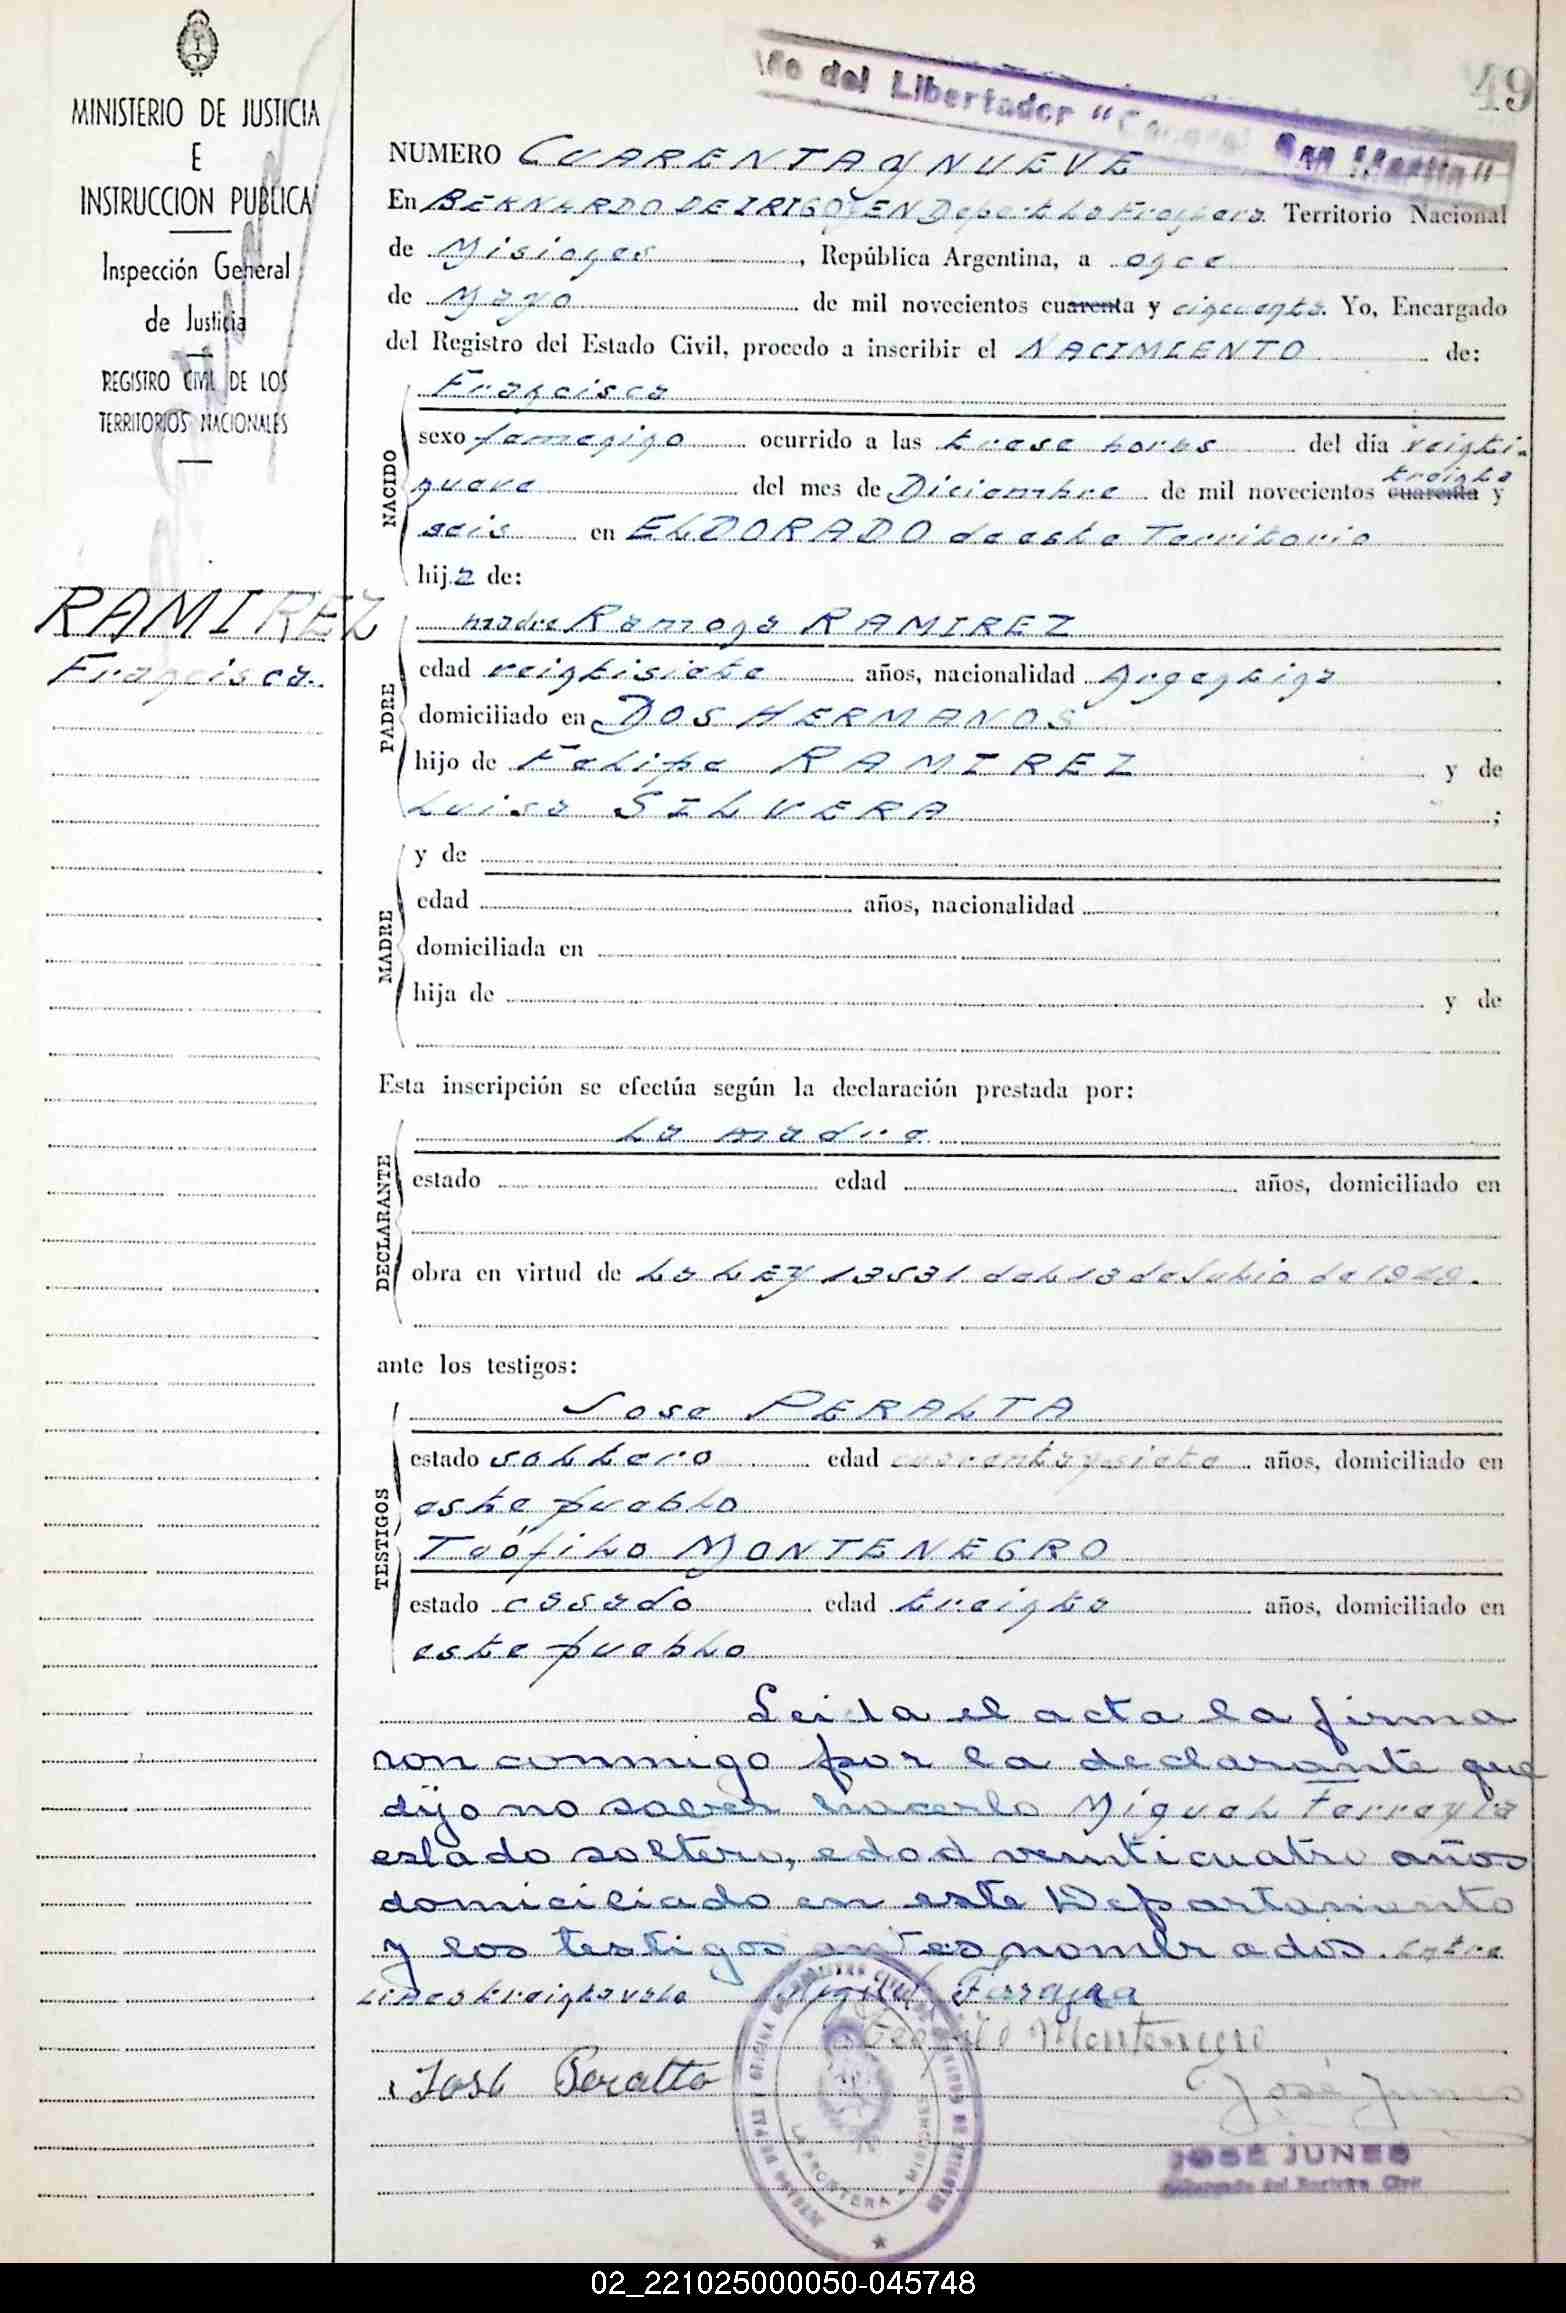 MINISTERIO DE JUSTICIA
E
INSTRUCCION PUBLICA
Inspección General
de Justicia
REGISTRO CIVIL DE LOS
TERRITORIOS NACIONALES
RAMIREZ
Francisca.
Año del Libertador "General San Martin"
49
NUMERO CUARENTA y NUEVE
En BERNARDO DE IRIGOYEN Depart. La Frontera. Territorio Nacional
de Misiones, República Argentina, a once
de Mayo de mil novecientos cuarenta y cincuenta. Yo, Encargado
del Registro del Estado Civil, procedo a inscribir el NACIMIENTO de:
NACIDO
Francisca
sexo femenino ocurrido a las trese horas del día veinti-
treinta
nueve del mes de Diciembre de mil novecientos cuarenta y
seis en ELDORADO de este Territorio
hija de:
PADRE
madre Ramona RAMIREZ
edad veintisiete años, nacionalidad Argentina,
domiciliado en DOS HERMANOS
hijo de Felipe RAMIREZ y de
Luisa SILVERA;
MADRE
y de
edad años, nacionalidad
domiciliada en
hija de y de
Esta inscripción se efectúa según la declaración prestada por:
DECLARANTE
La madre
estado edad años, domiciliado en
obra en virtud de La LEY 13531 del 13 de Julio de 1949.
ante los testigos:
TESTIGOS
Jose PERALTA
estado soltero edad cuarenta y siete años, domiciliado en
este pueblo
Teófilo MONTENEGRO
estado casado edad treinta años, domiciliado en
este pueblo
Leida el acta la firma
ron conmigo por la declarante que
dijo no saber hacerlo Miguel Ferreyra
estado soltero, edad veinticuatro años
domiciliado en este Departamento
y los testigos antes nombrados. Entre
lineas treinta vale Miguel Ferreyra
Teofilo Montenegro
José Peralta
José Junes
JOSE JUNES
Encargado del Registro Civil
LA FRONTERA - MISIONES
02_221025000050-045748